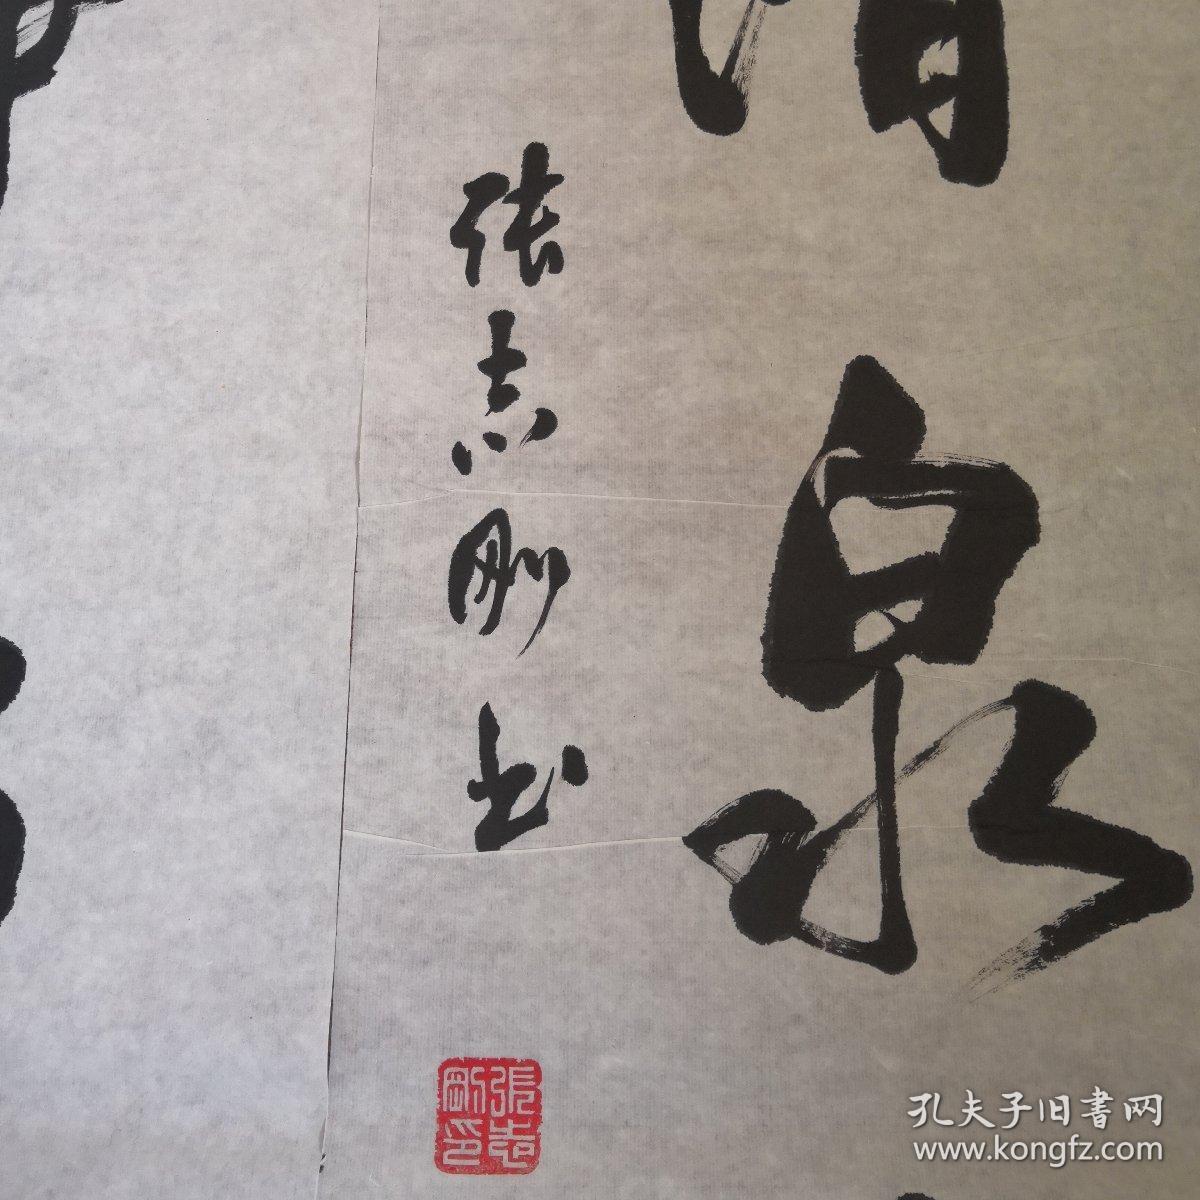 清泉
张志刚书
張志剛印
孔夫子旧書网
www.kongfz.com